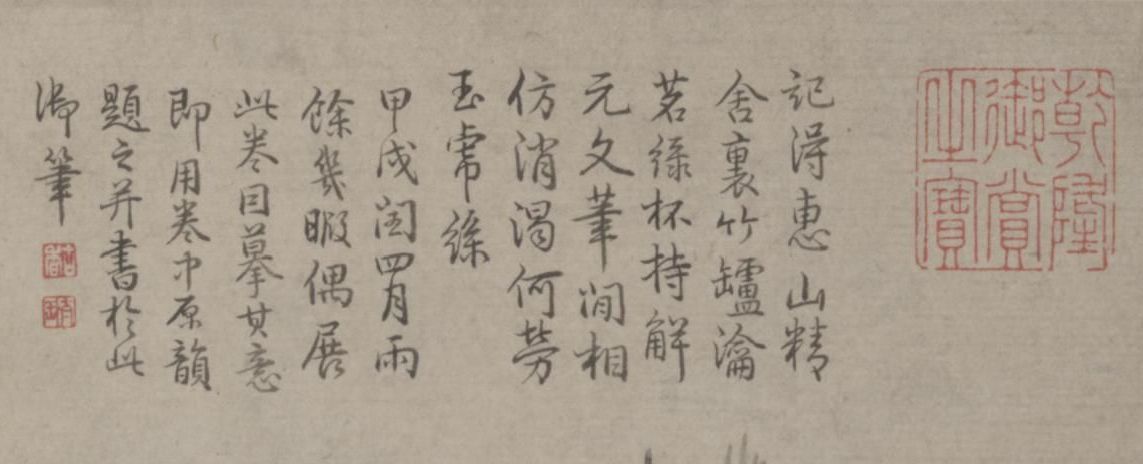 乾隆
御賞
之寶
記得惠山精
舍裏竹罏瀹
茗綠杯持解
元文筆閒相
仿消渴何勞
玉虎絲
甲戌閏四月雨
餘幾暇偶展
此卷因摹其意
即用卷中原韻
題之并書於此
御筆